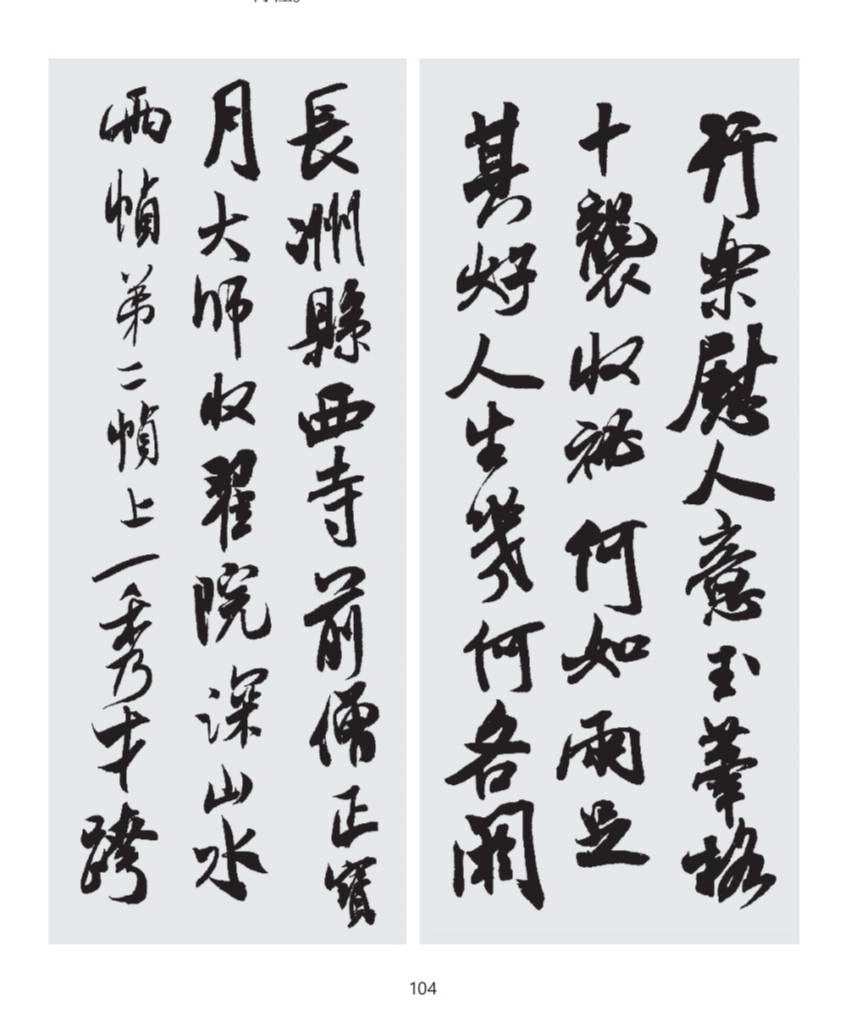 行樂慰人意玉華格
十襲收祕何如兩足
其好人生幾何各闕
長洲縣西寺前僧正寶
月大師收翟院深山水
兩幀第二幀上一秀才跨
104